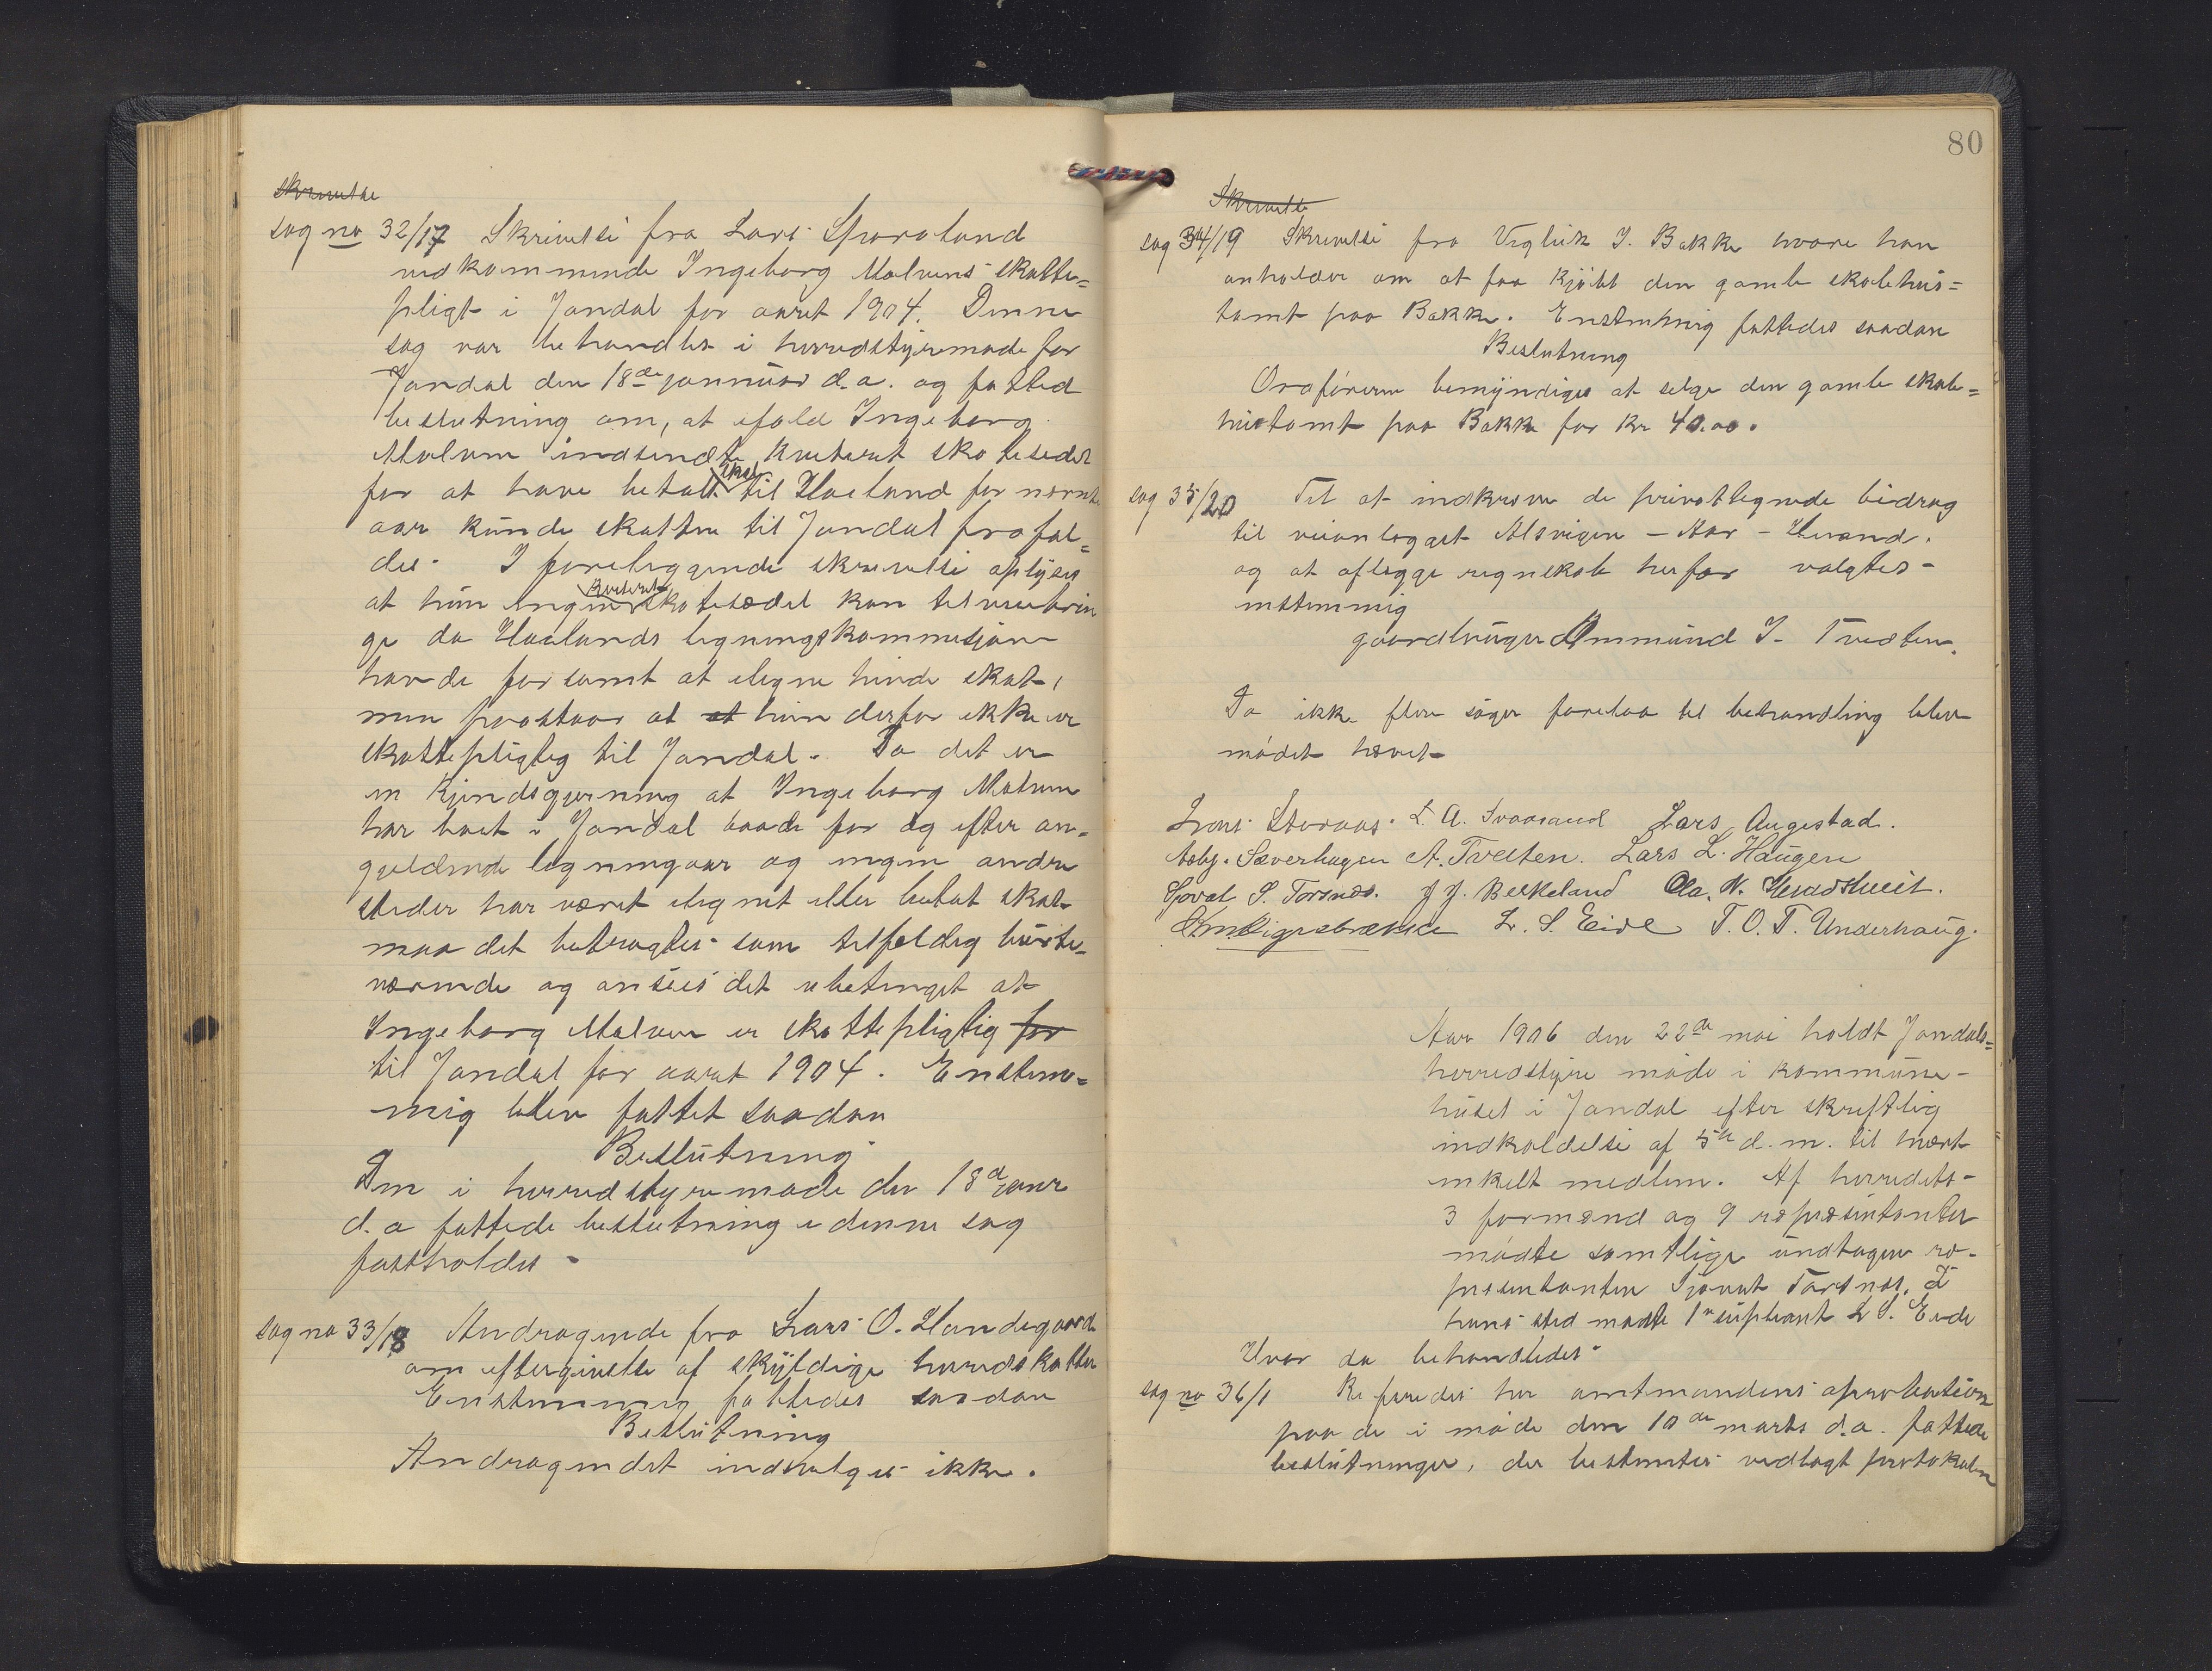 Skrivelse
sag no 32/17 Skrivelse fra Lars Sparaland
vedkommende Ingeborg Molvens skatte=
pligt i Jondal for aaret 1904. Denne
sag var behandlet i herredstyremøde for
Jondal den 18de januar d.a. og fatted
beslutning om, at ifald Ingeborg
Molven indsendte kviteret skatesedel
for at have betalt skat til Haaland for nævnte
aar kunde skatten til Jondal frafal=
des. I foreliggende skrivelse oplyses
at hun ingen kviteret skatesædel kan tilveiebrin
ge da Haalands ligningskommisjon
havde forsømt at iligne hende skat,
men paastaar at at hun derfor ikke er
skattepligtig til Jondal. Da det er
en kjendsgjerning at Ingeborg Molven
har boet i Jondal baade før og efter an=
gjeldende ligningaar og ingen andre
steder har været ilignet eller betalt skat
maa det betragtes som tilfeldig borte=
værende og ansees det ubetinget at
Ingeborg Molven er skattepligtig for
til Jondal for aaret 1904. Enstem=
mig blev fattet saadan
Beslutning
Den i herredstyremøde den 18d januar
d.a fattede beslutning i denne sag
fastholdes
sag no 33/18 Andragende fra Lars O. Handegaard
om eftergivelse af skyldige herredskatter
Enstemmig fattedes saadan
Beslutning
Andragendet indvilges ikke.
80
Skrivelse
sag 34/19 Skrivelse fra Vigleik J. Bakke hvore han
anholder om at faa kjøbt den gamle skolehus=
tomt paa Bakke. Enstemmig fattedes saadan
Beslutning
Ordføreren bemyndiges at selge den gamle skole=
hustomt paa Bakke for kr 40.00.
sag 35/20 Til at indkræve de privatlignede bidrag
til veianlægget Alsvigen - Aar - Herand.
og at aflægge regnskab herfor valgtes
enstemmig
gaardbruger Ommund J. Tveiten.
Da ikke flere sager forelaa til behandling blev
mødet hævet
Lars Storaas. L. A. Svaasand Lars Augestad.
Asbj. Sæverhagen A. Tveiten. Lars L. Haugen
Sjovat S. Torsnæs. J J. Belkeland Ola. N. Heradstveit.
L. S. Eide T. O. T. Underhaug.
Aar 1906 den 22de mai holdt Jondals=
herredstyre møde i kommune-
huset i Jondal efter skriftlig
indkaldelse af 5te d.m. til hvert
enkelt medlem. Af herredets
3 formænd og 9 repræsentanter
mødte samtlige undtagen re-
presentanten Sjovat Torsnæs. I
hans sted mødte 1ste supleant L S. Eide
Hvor da behandledes
sag no 36/1 Referedes her amtmandens aprobation
paa de i møde den 10de marts d.a. fattede
beslutninger, der bestemtes vedlagt protokolen